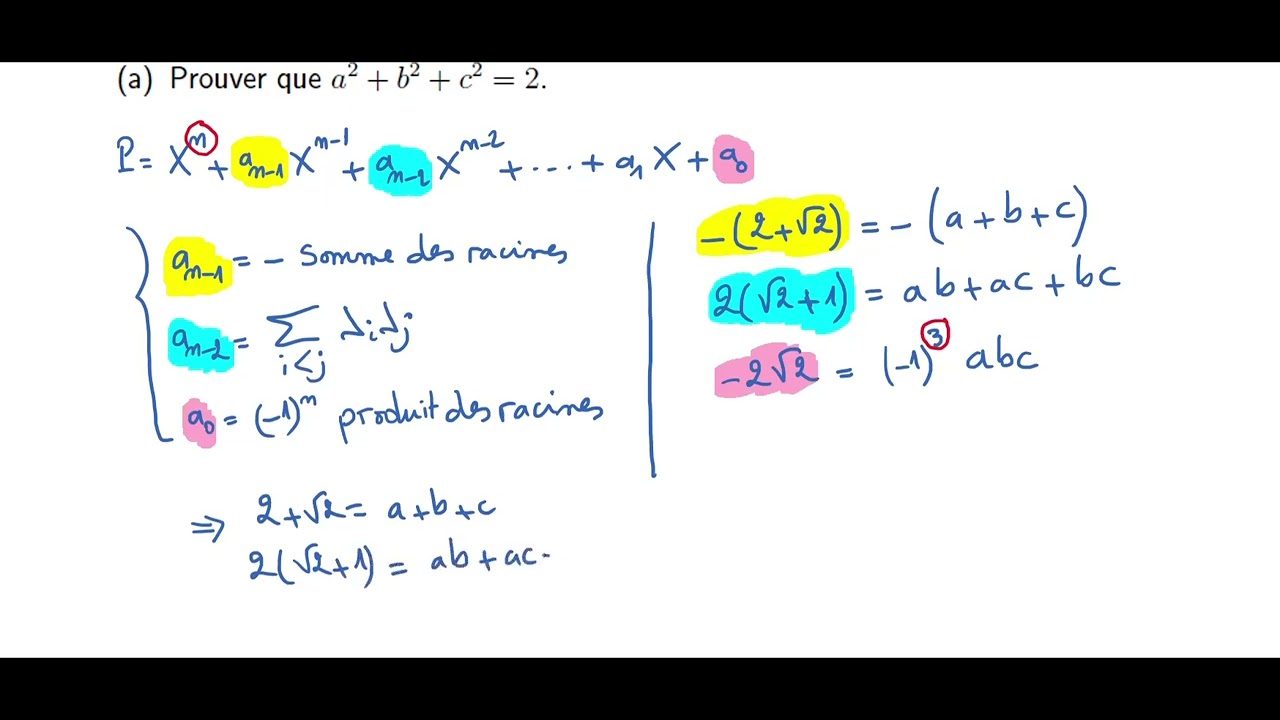 (a) Prouver que a² + b² + c² = 2.
P = Xⁿ + aₙ₋₁ Xⁿ⁻¹ + aₙ₋₂ Xⁿ⁻² + .... + a₁ X + a₀
aₙ₋₁ = - somme des racines
aₙ₋₂ = ∑ i<j λiλj
a₀ = (-1)ⁿ produit des racines
-(2+√2) = -(a+b+c)
2(√2+1) = ab+ac+bc
-2√2 = (-1)³ abc
⇒ 2+√2 = a+b+c
2(√2+1) = ab+ac